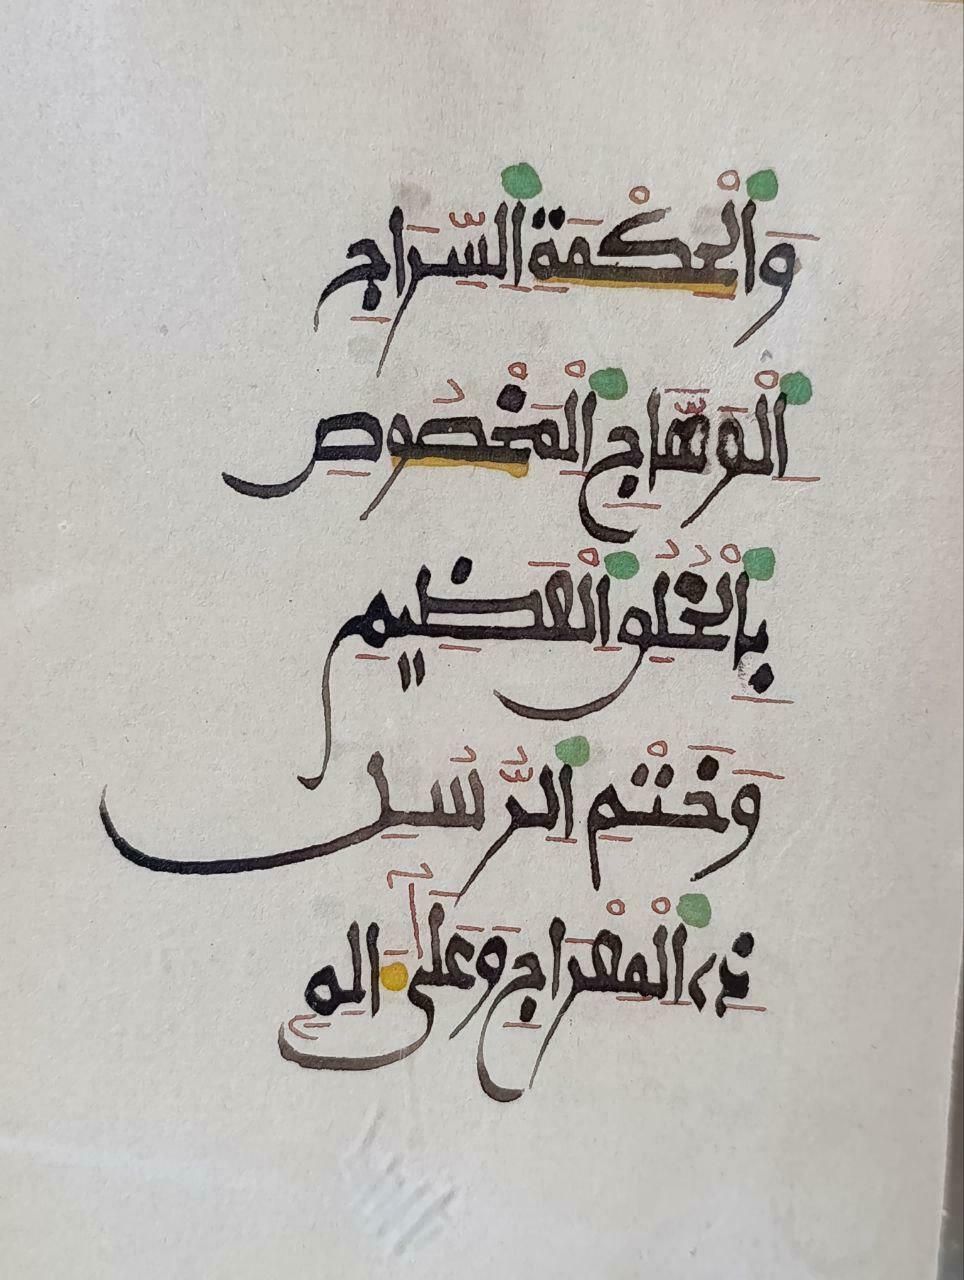 وَالْحِكْمَةِ السِّرَاجِ
الْوَهَّاجِ الْمَخْصُوصِ
بِالْخُلُقِ الْعَظِيمِ
وَخَتْمِ الرُّسُلِ
ذِى الْمِعْرَاجِ وَعَلَىٰ ءَالِهِ